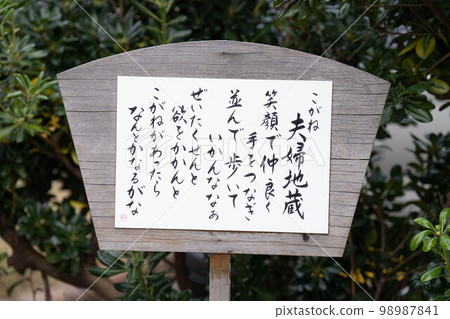 こがね
夫婦地蔵
笑顔で仲良く
手をつなぎ
並んで歩いて
いかんなぁ
ぜいたくせんと
欲をかかんと
こがねがあったら
なんとかなるがな
PIXTA
98987841